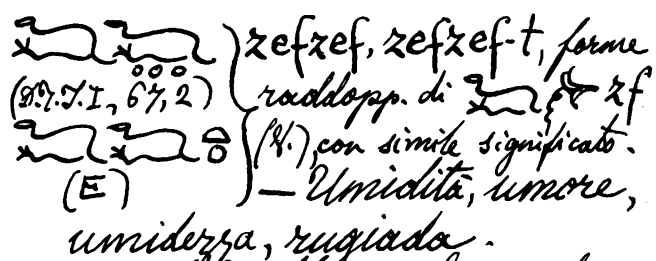 zefzef, zefzef-t, forme
(D.T.I.I, 67, 2) raddopp. di zf
(V.), con simile significato.
(E) — Umidità, umore,
umidezza, rugiada.